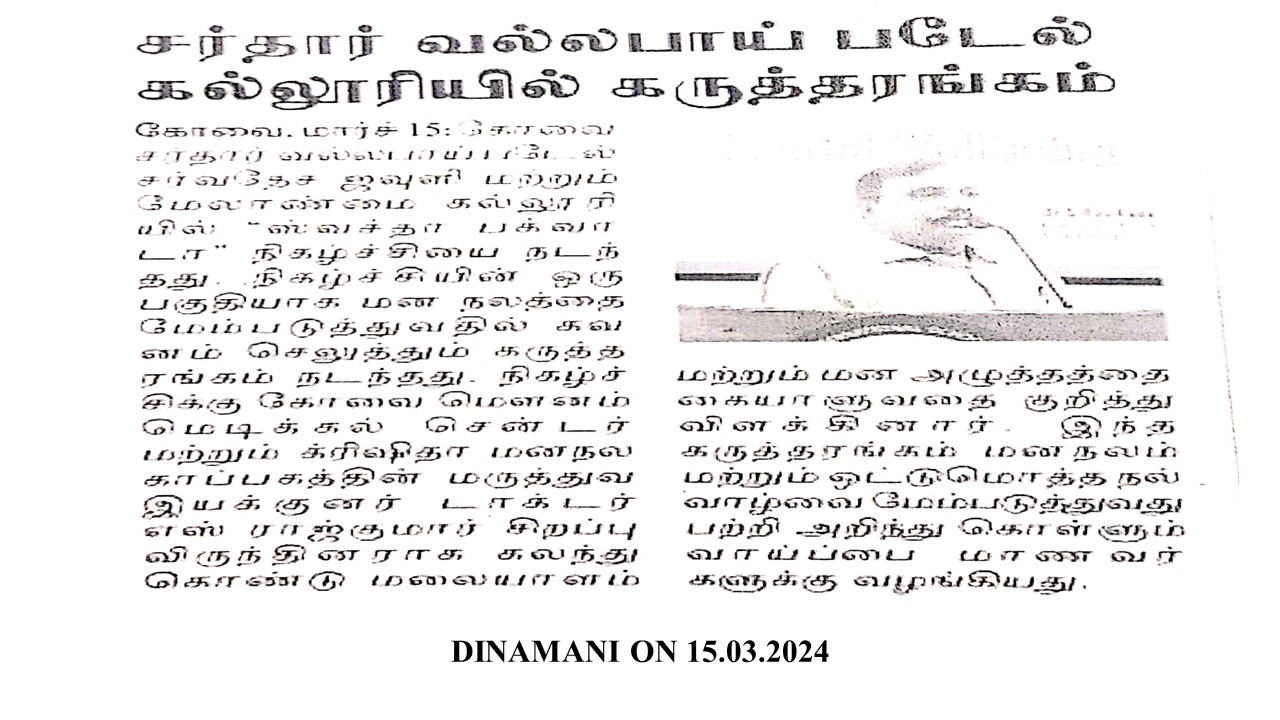 சர்தார் வல்லபாய் படேல்
கல்லூரியில் கருத்தரங்கம்
கோவை, மார்ச் 15: கோவை
சர்தார் வல்லபாய் படேல்
சர்வதேச ஜவுளி மற்றும்
மேலாண்மை கல்லூரி
யில் "ஸ்வச்தா பக்வா
டா" நிகழ்ச்சியை நடந்
தது. நிகழ்ச்சியின் ஒரு
பகுதியாக மன நலத்தை
மேம்படுத்துவதில் கவ
னம் செலுத்தும் கருத்த
ரங்கம் நடந்தது. நிகழ்ச்
சிக்கு கோவை மௌனம்
மெடிக்கல் சென்டர்
மற்றும் க்ரிஷிதா மனநல
காப்பகத்தின் மருத்துவ
இயக்குனர் டாக்டர்
எஸ் ராஜ்குமார் சிறப்பு
விருந்தினராக கலந்து
கொண்டு மலையாளம்
மற்றும் மன அழுத்தத்தை
கையாளுவதை குறித்து
விளக்கினார். இந்த
கருத்தரங்கம் மனநலம்
மற்றும் ஒட்டுமொத்த நல்
வாழ்வை மேம்படுத்துவது
பற்றி அறிந்து கொள்ளும்
வாய்ப்பை மாணவர்
களுக்கு வழங்கியது.
DINAMANI ON 15.03.2024